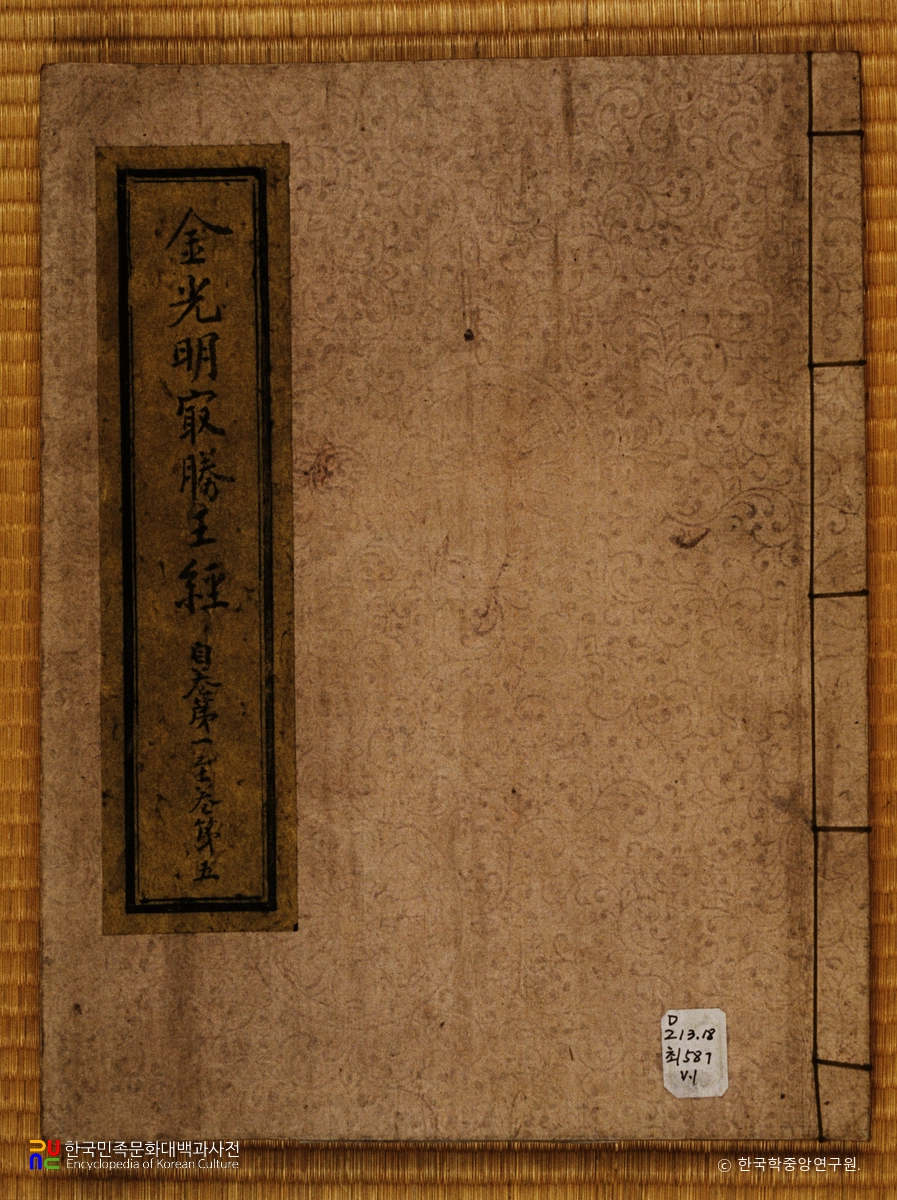 金光明㝡勝王經 自卷第一至卷第五
D
213.18
최587
V.1
한국민족문화대백과사전
Encyclopedia of Korean Culture
© 한국학중앙연구원.